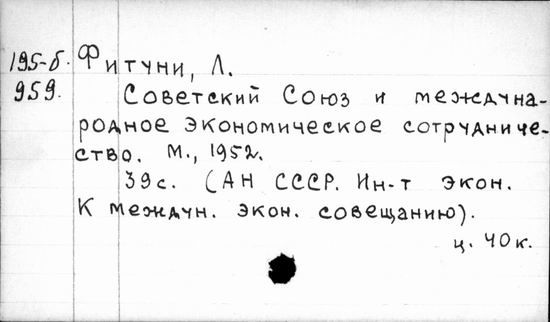 195-б. Фитуни, Л.
959. Советский Союз и междуна-
родное экономическое сотрудниче-
ство. М., 1952.
39с. (АН СССР. Ин-т экон.
К междун. экон. совещанию).
ц. 40к.